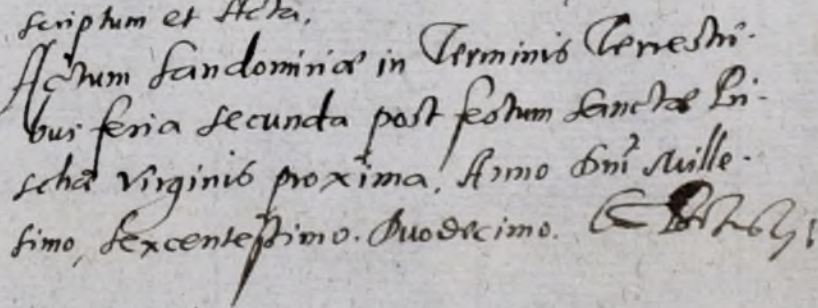 scriptum et Acta.
Actum Sandomiriæ in Terminis Terrestri-
bus feria secunda post festum Sanctæ Pri-
schæ Virginis proxima, Anno Dni Mille-
simo, Sexcentesimo. Duodecimo.